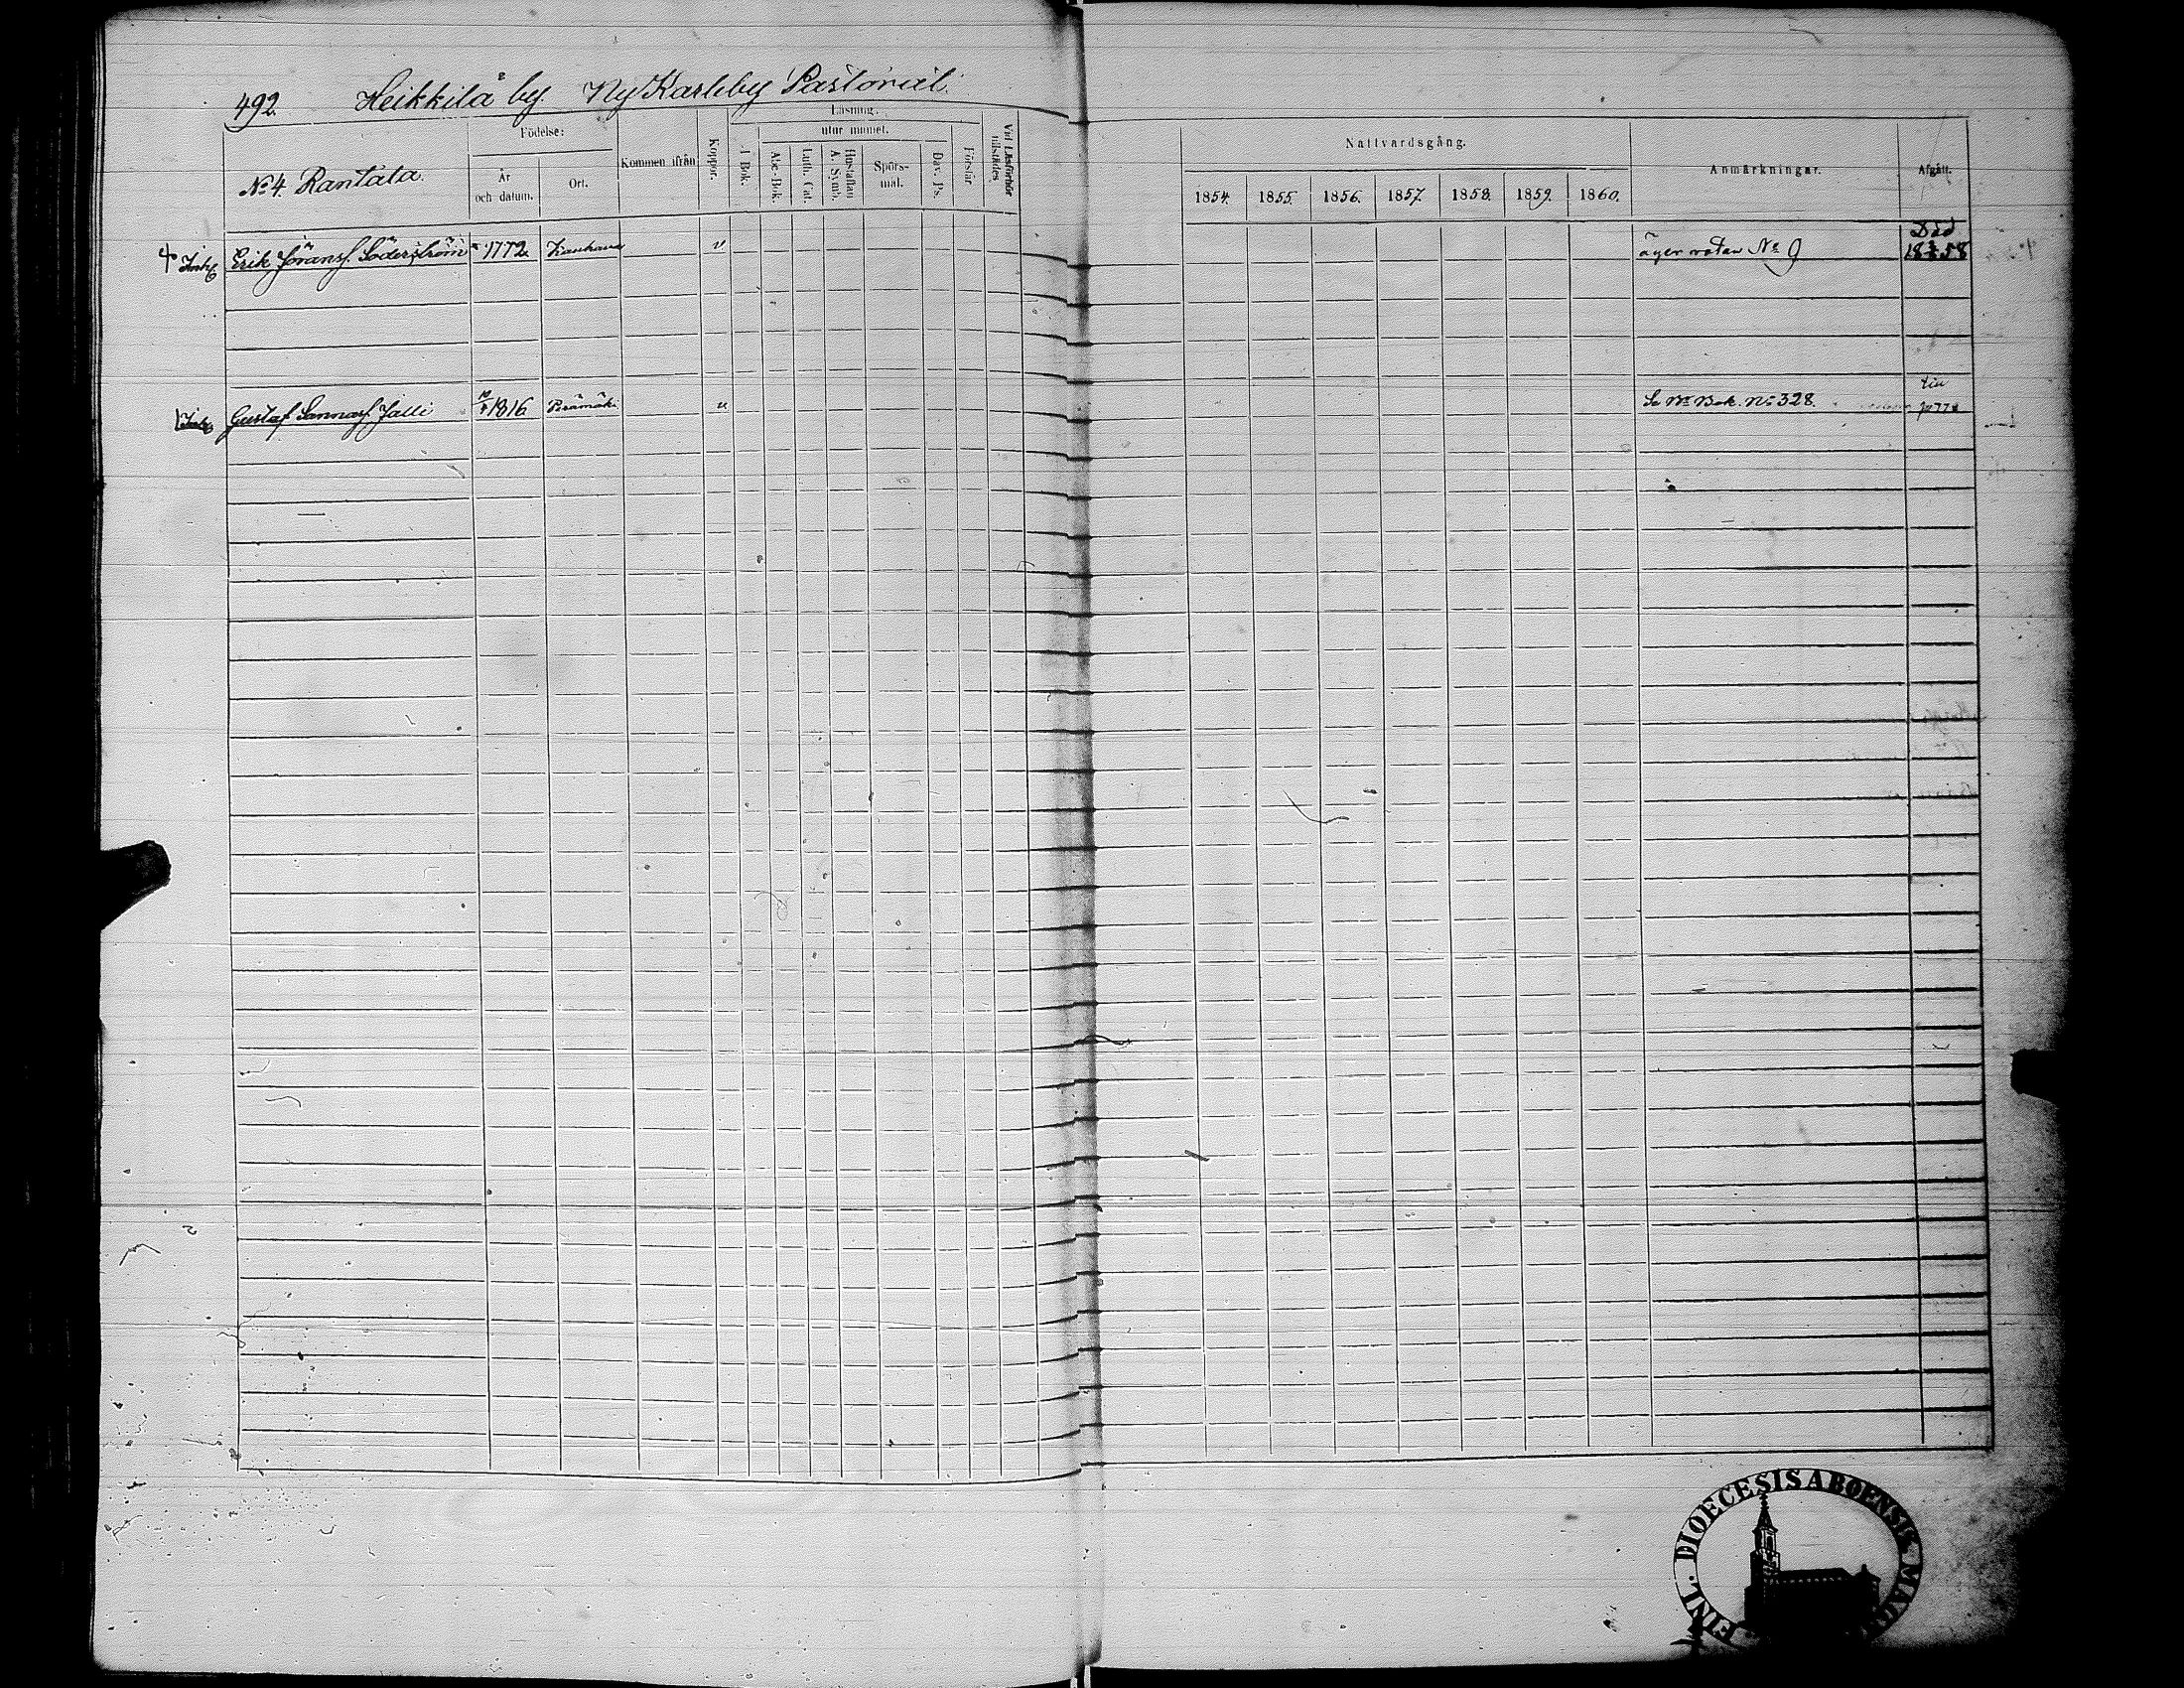 492. Heikkilä by. Ny Karleby Pastorat.
Läsning.
Födelse:
Kommen ifrån
Koppor.
utur minnet.
Vid Läsförhör tillstädes
№ 4. Rantala.
År och datum.
Ort.
I Bok.
Abc-Bok.
Luth. Cat.
Hustaflan A. Symb.
Spörs-mål.
Dav. Ps.
Förstår
Nattvardsgång.
Anmärkningar.
Afgått.
1854. 1855. 1856. 1857. 1858. 1859. 1860.
Inh. Erik Göranss. Söderström 1772. Kauhava v äger rotan № 9 Död 1858
Inh. Gustaf Sannass. Jälli 1816 Perämäki v Se Bok. № 328.
FINL. DIOECESIS ABOENSIS